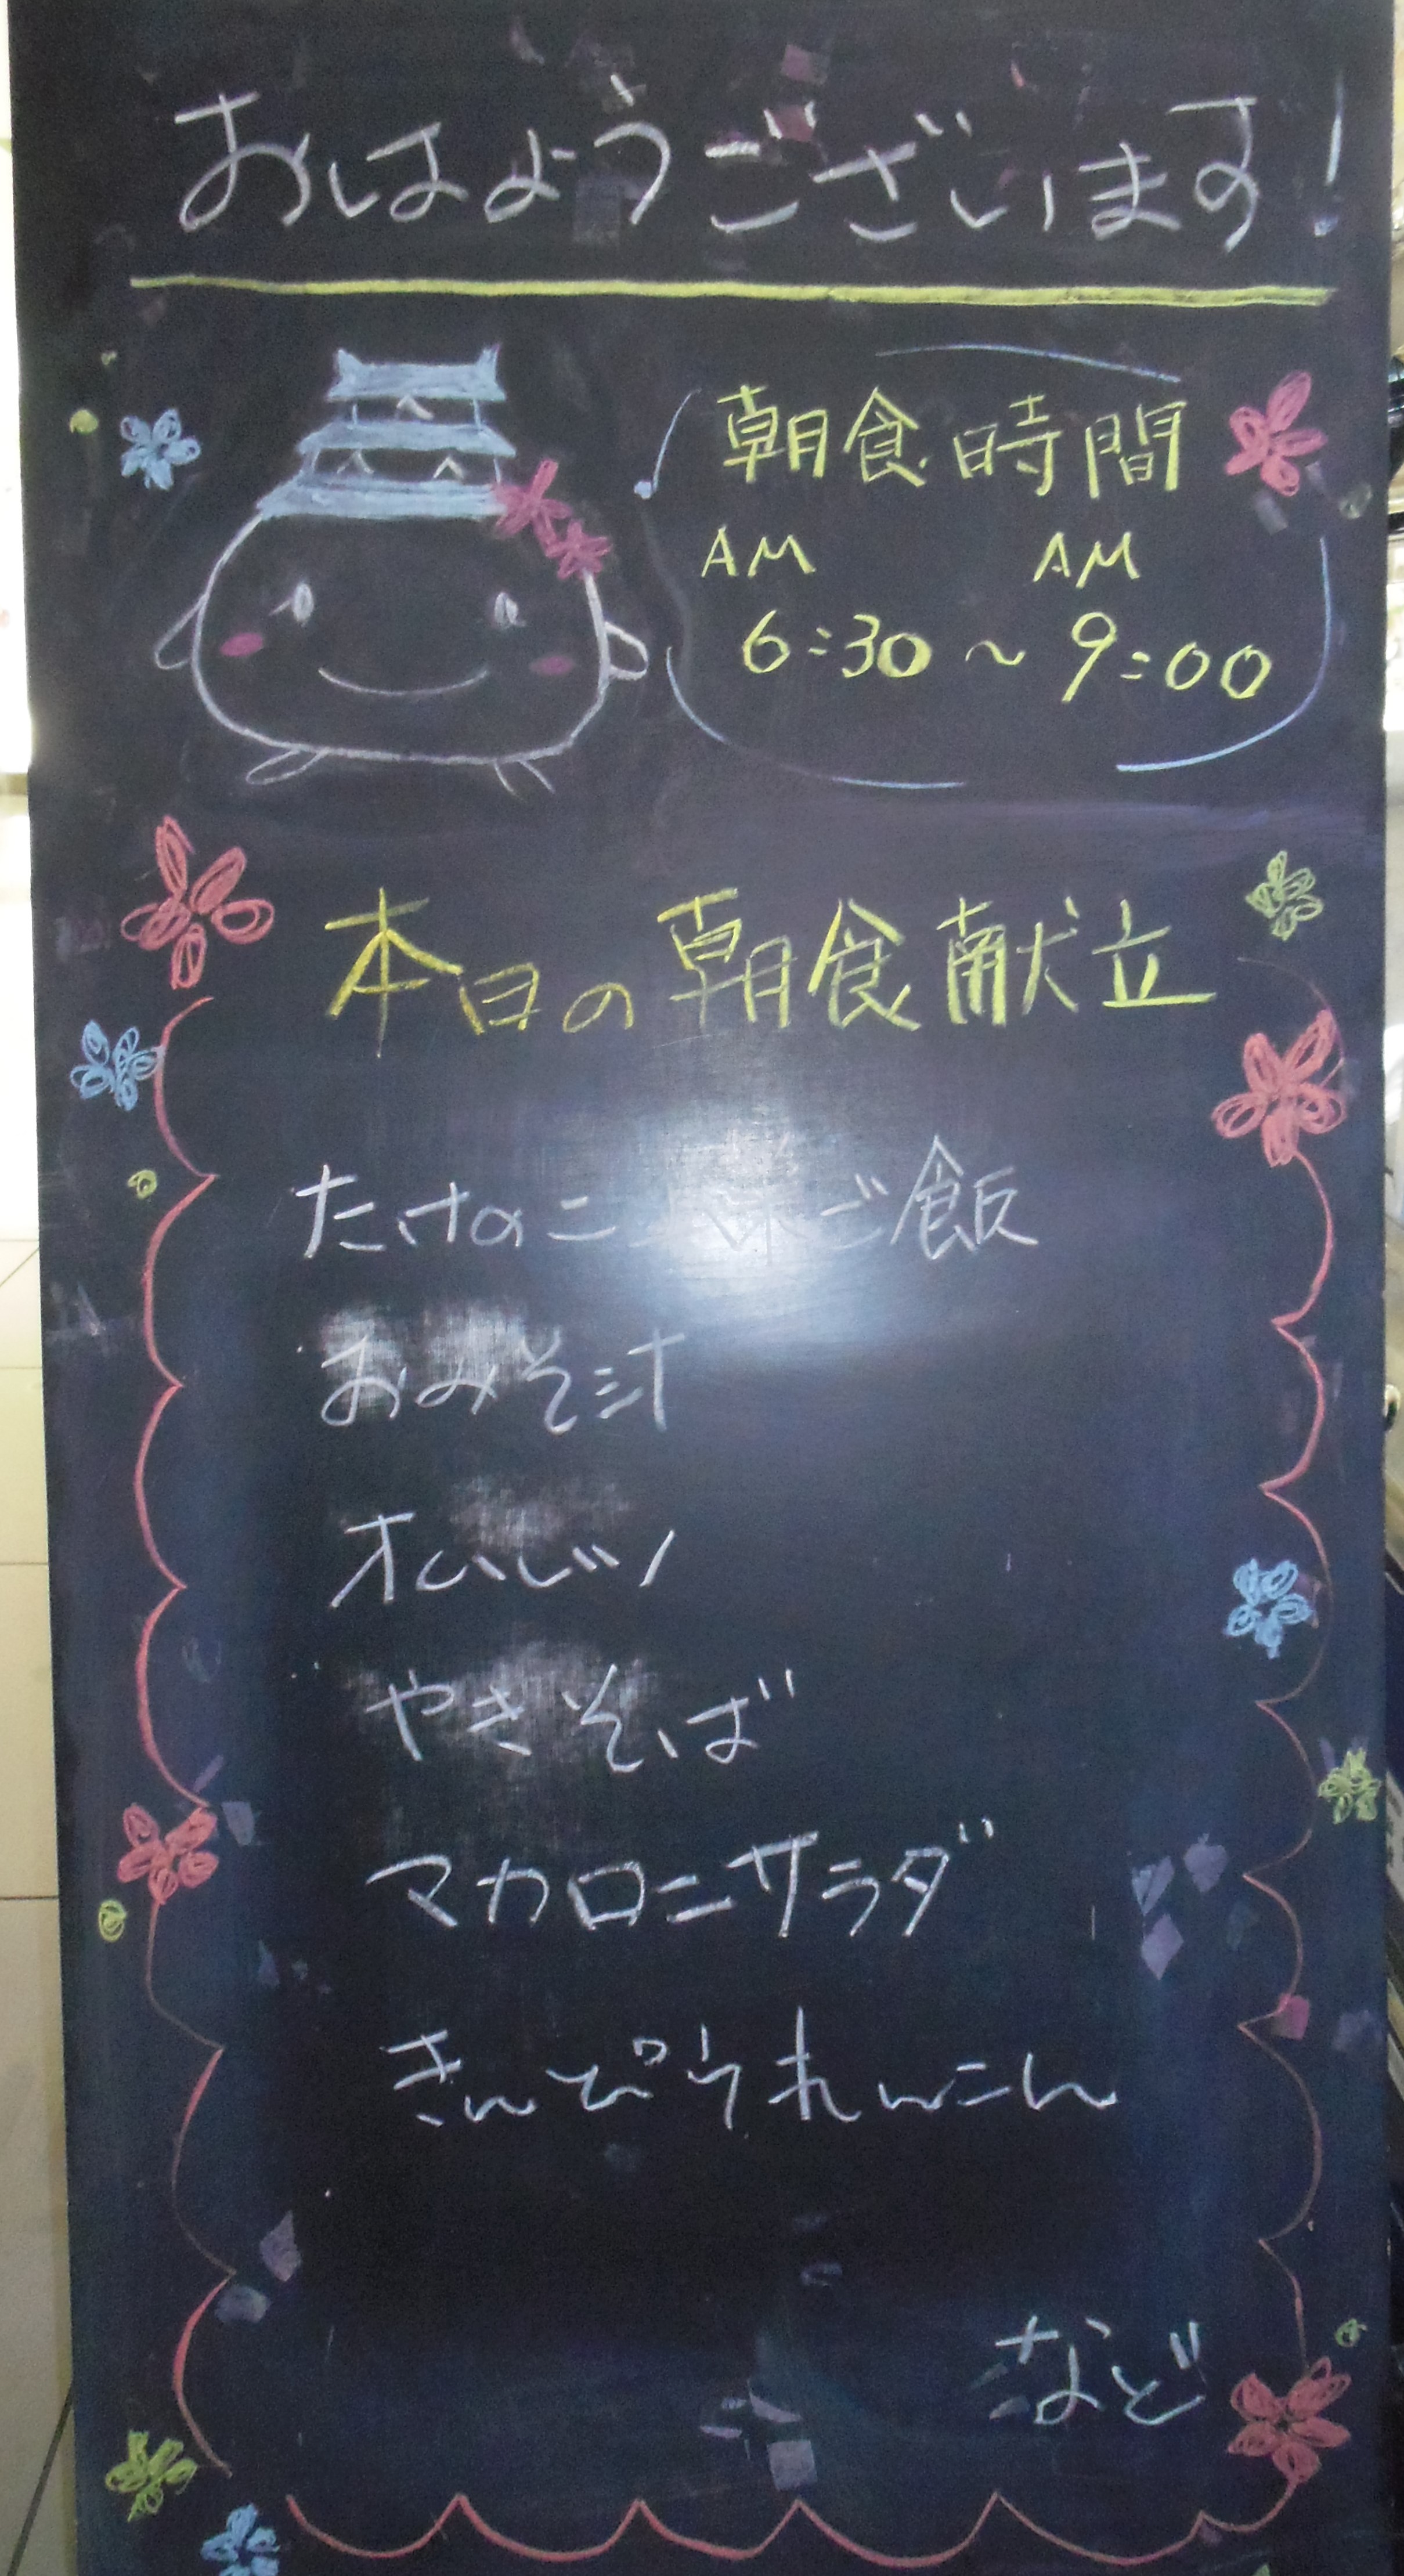 おはようございます!
朝食時間
AM AM
6:30～9:00
本日の朝食献立
たけのこ ご飯
おみそ汁
オムレツ
やきそば
マカロニサラダ
きんぴられんこん
など